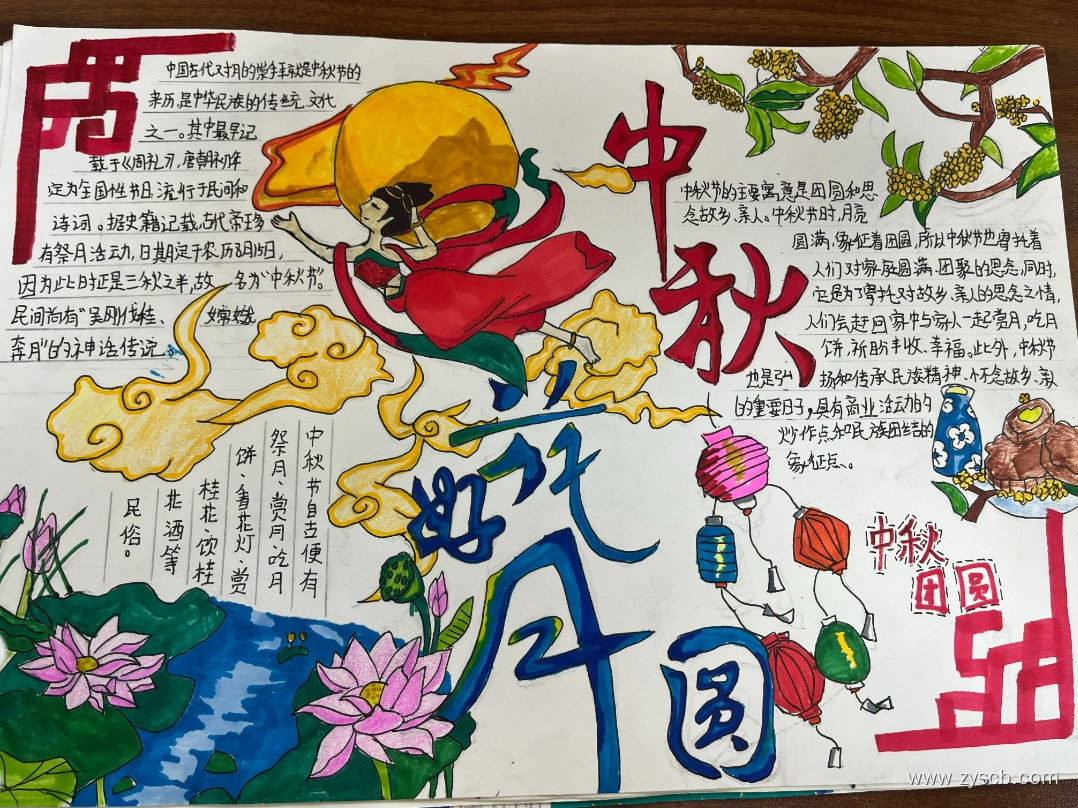 中国古代对月的崇拜就是中秋节的
来历,是中华民族的传统文化
之一。其中最早记
载于《周礼》,唐朝初年
定为全国性节日,流行于民间和
诗词。据史籍记载,古代帝王
有祭月活动,日期定于农历8月15日,
因为此时正是三秋之半,故名为“中秋节”。
民间尚有“吴刚伐桂、嫦娥
奔月”的神话传说
中秋
中秋节的主要寓意是团圆和思
念故乡、亲人。中秋节时,月亮
圆满,象征着团圆,所以中秋节也寄托着
人们对家庭圆满、团聚的思念,同时,
它是为了寄托对故乡、亲人的思念之情,
人们会赶回家中与家人一起赏月,吃月
饼,祈盼丰收、幸福。此外,中秋节
也是弘扬和传承民族精神、怀念故乡、亲
的重要日子,具有商业活动的
炒作点和民族团结的
象征点、。
中秋节自古便有
祭月、赏月、吃月
饼、看花灯、赏
桂花、饮桂
花酒等
民俗。
花好月圆
中秋
团圆
www.zyscb.com